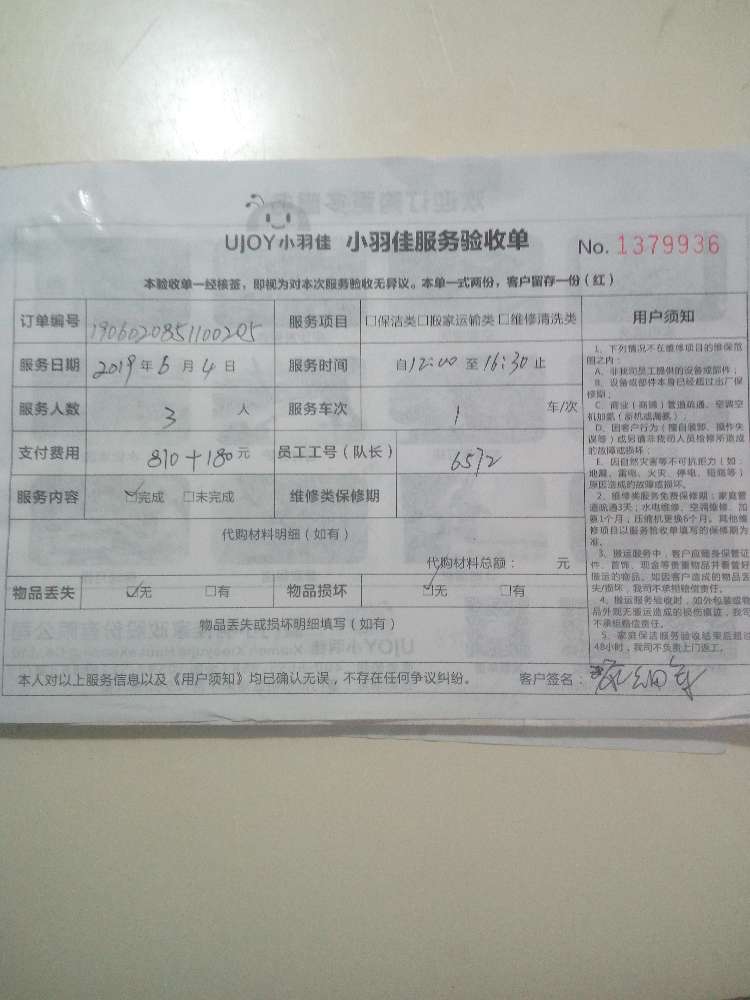 UJOY小羽佳 小羽佳服务验收单 No. 1379936
本验收单一经核签，即视为对本次服务验收无异议。本单一式两份，客户留存一份（红）
订单编号 1906020851100205 服务项目 □保洁类□搬家运输类□维修清洗类
服务日期 2019年6月4日 服务时间 自12:00至16:30止
服务人数 3人 服务车次 1 车/次
支付费用 810+180元 员工工号（队长） 6572
服务内容 ☑完成 □未完成 维修类保修期
代购材料明细（如有）
代购材料总额： 元
物品丢失 ☑无 □有 物品损坏 ☑无 □有
物品丢失或损坏明细填写（如有）
本人对以上服务信息以及《用户须知》均已确认无误，不存在任何争议纠纷。 客户签名：
用户须知
1、下列情况不在维修项目的维保范
围之内：
A、非我司员工提供的设备或部件；
B、设备或部件本身已经超过出厂保
修期；
C、商业（商铺）管道疏通、空调空
机加氟（新机或漏氟）；
D、因客户行为（擅自装卸、操作失
误等）或另请非我司人员检修所造成
的故障或损坏；
E、因自然灾害等不可抗拒力（如：
地震、雷电、火灾、停电、短路等）
原因造成的故障或损坏。
2、维修类服务免费保修期：家庭管
道疏通3天；水电维修、空调维修、加
氟1个月，压缩机更换6个月。其他维
修项目以服务验收单填写的保修期为
准。
3、搬运服务中，客户应随身保管证
件、首饰、现金等贵重物品并看管好
搬运的物品。如因客户造成的物品丢
失/损坏，我司不承担赔偿责任。
4、搬运服务验收时，如外包装或物
品外观无搬运造成的损伤痕迹，我司
不承担赔偿责任。
5、家庭保洁服务验收结束后超过
48小时，我司不负责上门返工。